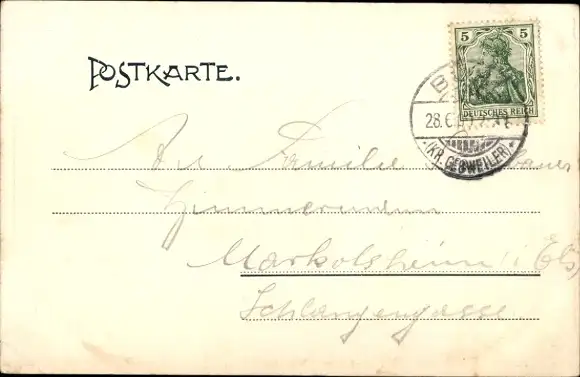 5 5
DEUTSCHES REICH
POSTKARTE.
B
28.6.
(KR. GEBWEILER)
An Familie
Zimmermann
Markolsheim i Els
Schlangengasse